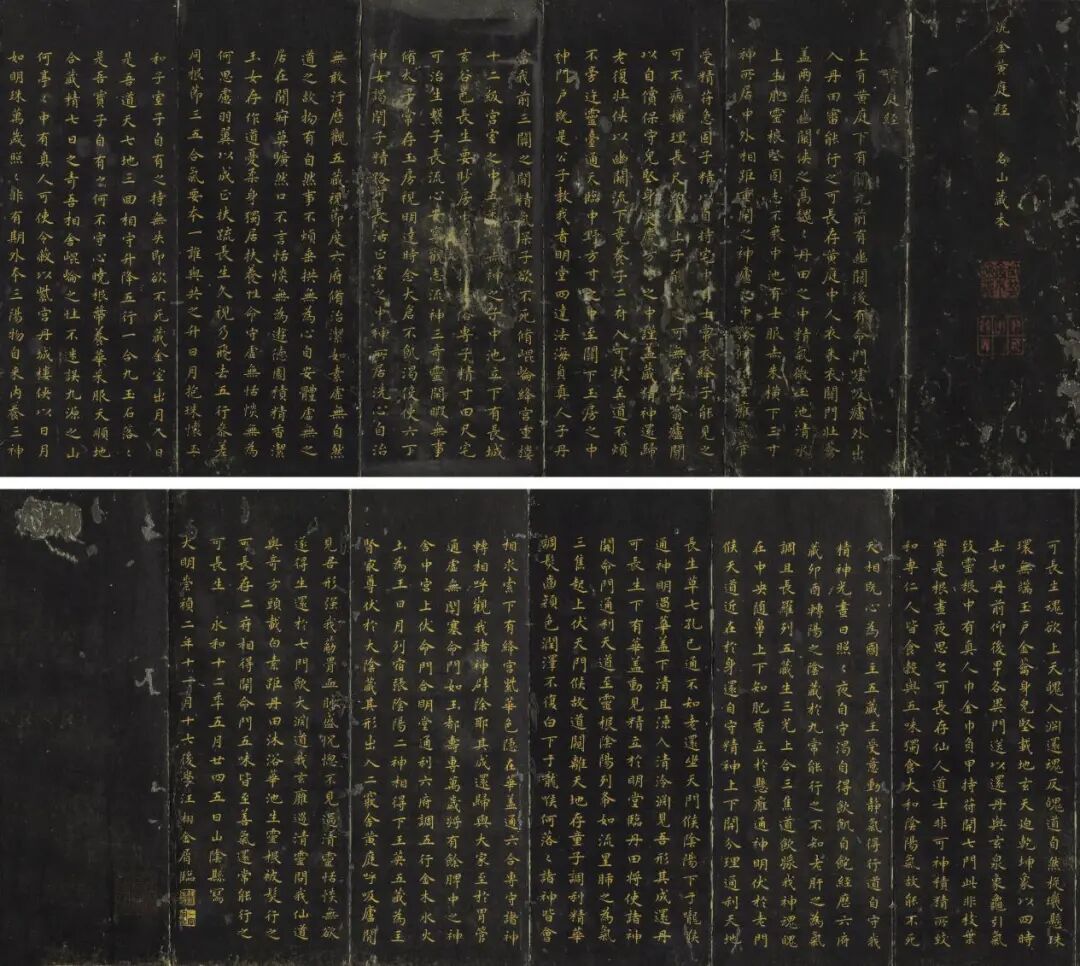 泥金黄庭經　名山藏本
黄庭經
上有黄庭下有關元前有幽闕後有命門嘘吸廬外出
入丹田審能行之可長存黄庭中人衣朱衣關門壯籥
盖兩扉幽闕俠之高魏〻丹田之中精氣微玉池清水
上生肥靈根堅固志不衰中池有士服赤朱横下三寸
神所居中外相距重閉之神廬之中務脩治玄雍氣管
受精符急固子精以自持宅中有士常衣絳子能見之
可不病横理長尺約其上子能守之可無恙呼噏廬間
以自償保守完堅身受慶方寸之中謹盖藏精神還歸
老復壯俠以幽闕流下竟養子玉樹令可杖至道不煩
不旁迕靈臺通天臨中野方寸之中至關下玉房之中
神門户既是公子教我者明堂四達法海員真人子丹
當我前三關之間精氣深子欲不死脩崐崘絳宫重樓
十二級宫室之中五采集赤神之子中池立下有長城
玄谷邑長生要眇房中急棄捐摇俗專子精寸田尺宅
可治生繫子長流心安寧觀志流神三奇靈閒暇無事
脩太平常存玉房視明達時念大倉不飢渴役使六丁
神女謁閉子精路可長活正室之中神所居洗心自治
無敢汙歷觀五藏視節度六府脩治潔如素虚無自然
道之故物有自然事不煩垂拱無為心自安體虚無之
居在間廓寂莫曠然口不言恬惔無為遊德園積精香潔
玉女存作道憂柔身獨居扶養性命守虚無恬惔無為
何思慮羽翼以成正扶疏長生久視乃飛去五行參差
同根節三五合氣要本一誰與共之升日月抱珠懷玉
和子室子自有之持無失即欲不死藏金室出月入日
是吾道天七地三回相守升降五行一合九玉石落〻
是吾寶子自有之何不守心曉根蔕養華采服天順地
合藏精七日之奇吾相舍崐崘之性不迷誤九源之山
何亭〻中有真人可使令蔽以紫宫丹城樓俠以日月
如明珠萬歲照〻非有期外本三陽物自來内養三神
可長生魂欲上天魄入淵還魂反魄道自然旋璣懸珠
環無端玉户金籥身完堅載地玄天迫乾坤象以四時
赤如丹前仰後卑各異門送以還丹與玄泉象龜引氣
致靈根中有真人巾金巾負甲持符開七門此非枝葉
實是根晝夜思之可長存仙人道士非可神積精所致
和專仁人皆食穀與五味獨食大和陰陽氣故能不死
天相既心為國主五藏王受意動静氣得行道自守我
精神光晝日照〻夜自守渴自得飲飢自飽經歷六府
藏卯酉轉陽之陰藏於九常能行之不知老肝之為氣
調且長羅列五藏生三光上合三焦道飲漿我神魂魄
在中央随鼻上下知肥香立於懸雍通神明伏於老門
候天道近在於身還自守精神上下開分理通利天地
長生草七孔已通不知老還坐天門候陰陽下于嚨喉
通神明過華盖下清且凉入清泠淵見吾形其成還丹
可長生下有華盖動見精立於明堂臨丹田將使諸神
開命門通利天道至靈根陰陽列布如流星肺之為氣
三焦起上伏天門候故道闚離天地存童子調利精華
調髮齒顔色潤澤不復白下于嚨喉何落〻諸神皆會
相求索下有絳宫紫華色隱在華盖通六合專守諸神
轉相呼觀我諸神辟除耶其成還歸與大家至於胃管
通虚無閉塞命門如玉都壽專萬歲將有餘脾中之神
舍中宫上伏命門合明堂通利六府調五行金木水火
土為王日月列宿張陰陽二神相得下玉英五藏為主
腎最尊伏於大陰藏其形出入二竅舍黄庭呼吸廬間
見吾形强我筋骨血脉盛恍惚不見過清靈恬惔無欲
遂得生還於七門飲大淵道我玄雍過清靈問我仙道
與奇方頭載白素距丹田沐浴華池生靈根被髮行之
可長存二府相得開命門五味皆至善氣還常能行之
可長生　永和十二年五月廿四五日山陰縣寫
大明崇禎二年十一月十七後學汪栩金屑臨